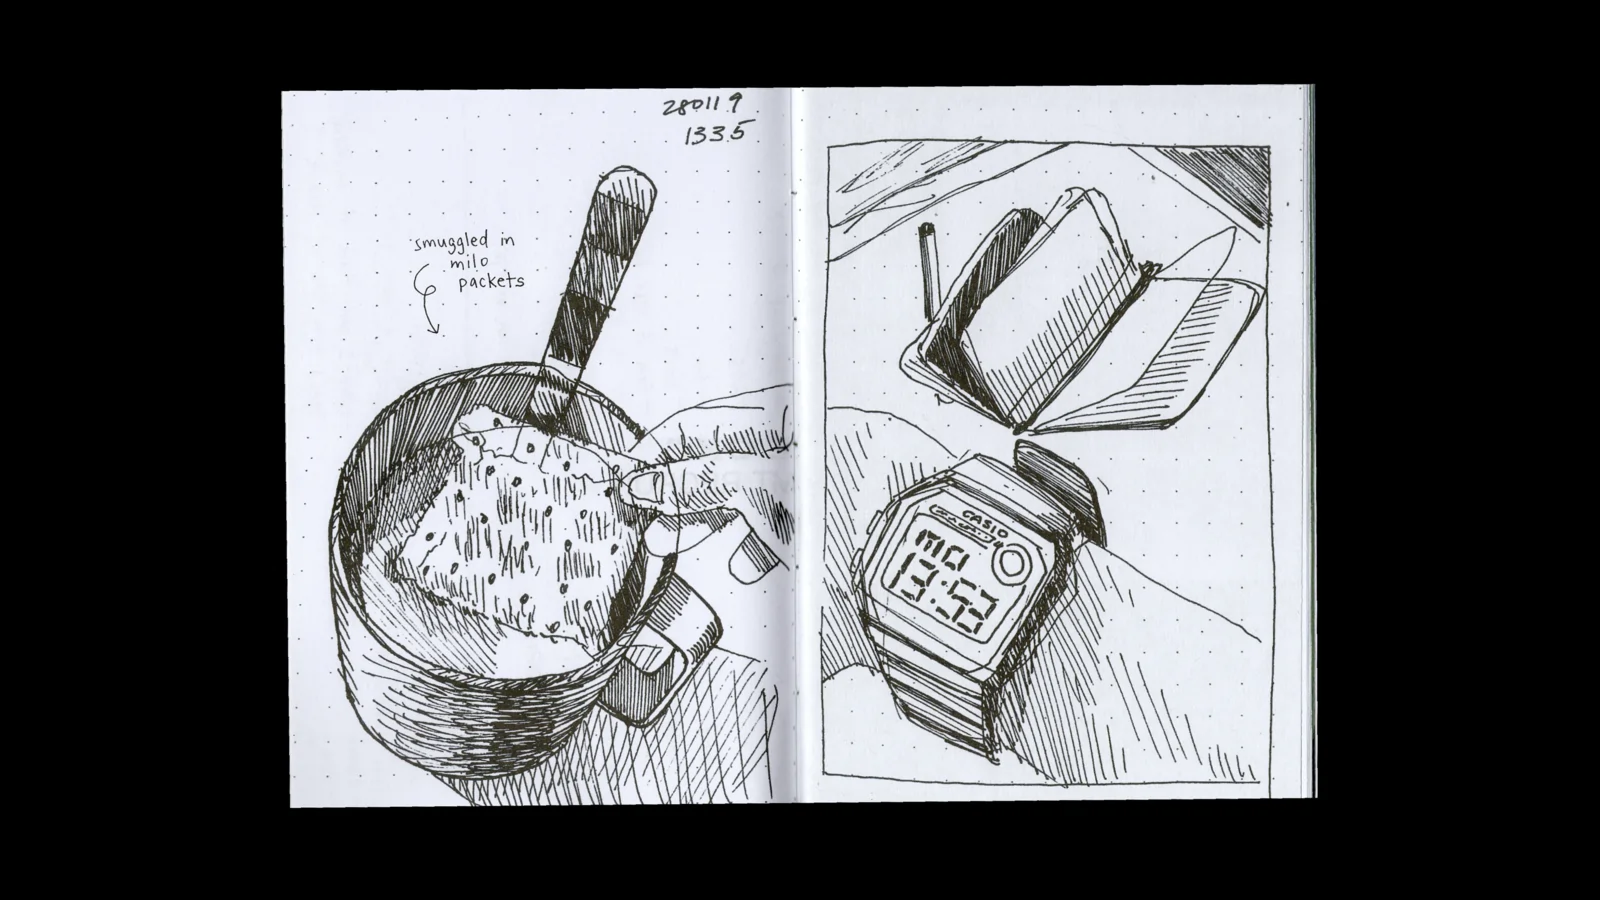 280119
1335
smuggled in
milo
packets
CASIO
MO
13:53